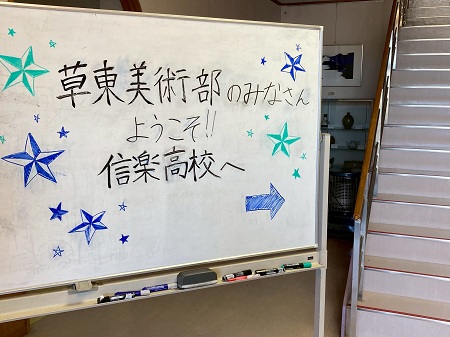 草東美術部のみなさん
ようこそ!!
信楽高校へ